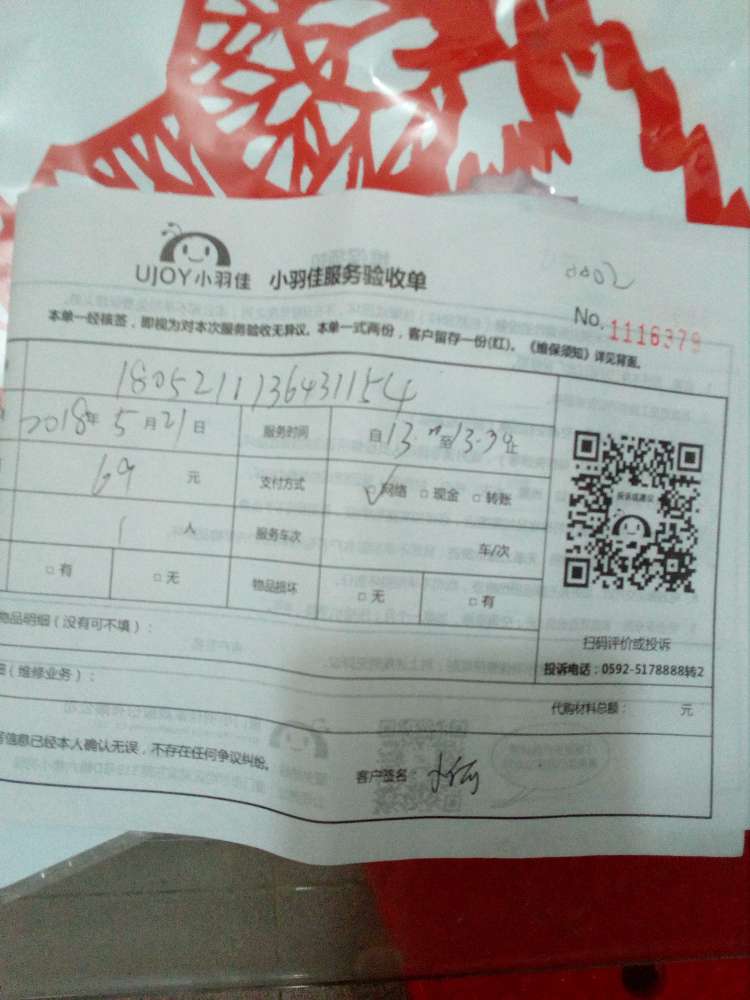 UJOY小羽佳 小羽佳服务验收单
No. 1116379
本单一经核签，即视为对本次服务验收无异议。本单一式两份，客户留存一份(红)。《维保须知》详见背面。
1805211136431154
2018年 5月21日 服务时间 自13. 至13.39止
69 元 支付方式 网络 □ 现金 □ 转账
1 人 服务车次 车/次
□ 有 □ 无 物品损坏 □ 无 □ 有
投诉或建议
扫码评价或投诉
投诉电话：0592-5178888转2
物品明细（没有可不填）：
（维修业务）：
代购材料总额： 元
信息已经本人确认无误，不存在任何争议纠纷。
客户签名：